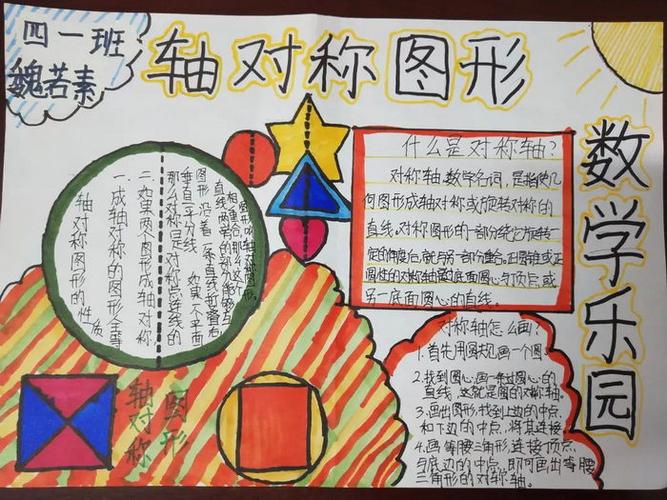 四一班
魏若素
轴对称图形
数学乐园
什么是对称轴?
对称轴,数学名词,是指使几
何图形成轴对称或旋转对称的
直线,对称图形的一部分绕它旋转一
定的角度后,就与另一部分重合。
圆柱的对称轴是过底面圆心与顶点或
另一底面圆心的直线。
对称轴怎么画?
1.首先用圆规画一个圆。
2.找到圆心,画一条过圆心的
直线,这就是圆的对称轴。
3.画出图形,找到上边的中点
和下边的中点,将其连接
4.画等腰三角形,连接顶点
与底边的中点,即可画出等腰
三角形的对称轴。
轴对称图形的性质
一、成轴对称的图形全等
二、如果两个图形成轴对称
那么对称轴是对称点连线的
垂直平分线
如果一个平面
图形沿着一条直线折叠
直线两旁的部分能够互
相重合,那么这个
图形叫轴对称图形。
轴对称
图形